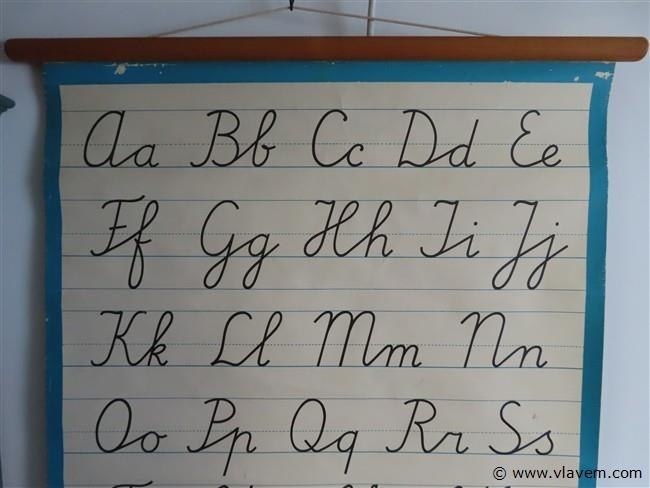 Aa Bb Cc Dd Ee
Ff Gg Hh Ii Jj
Kk Ll Mm Nn
Oo Pp Qq Rr Ss
© www.vlavem.com